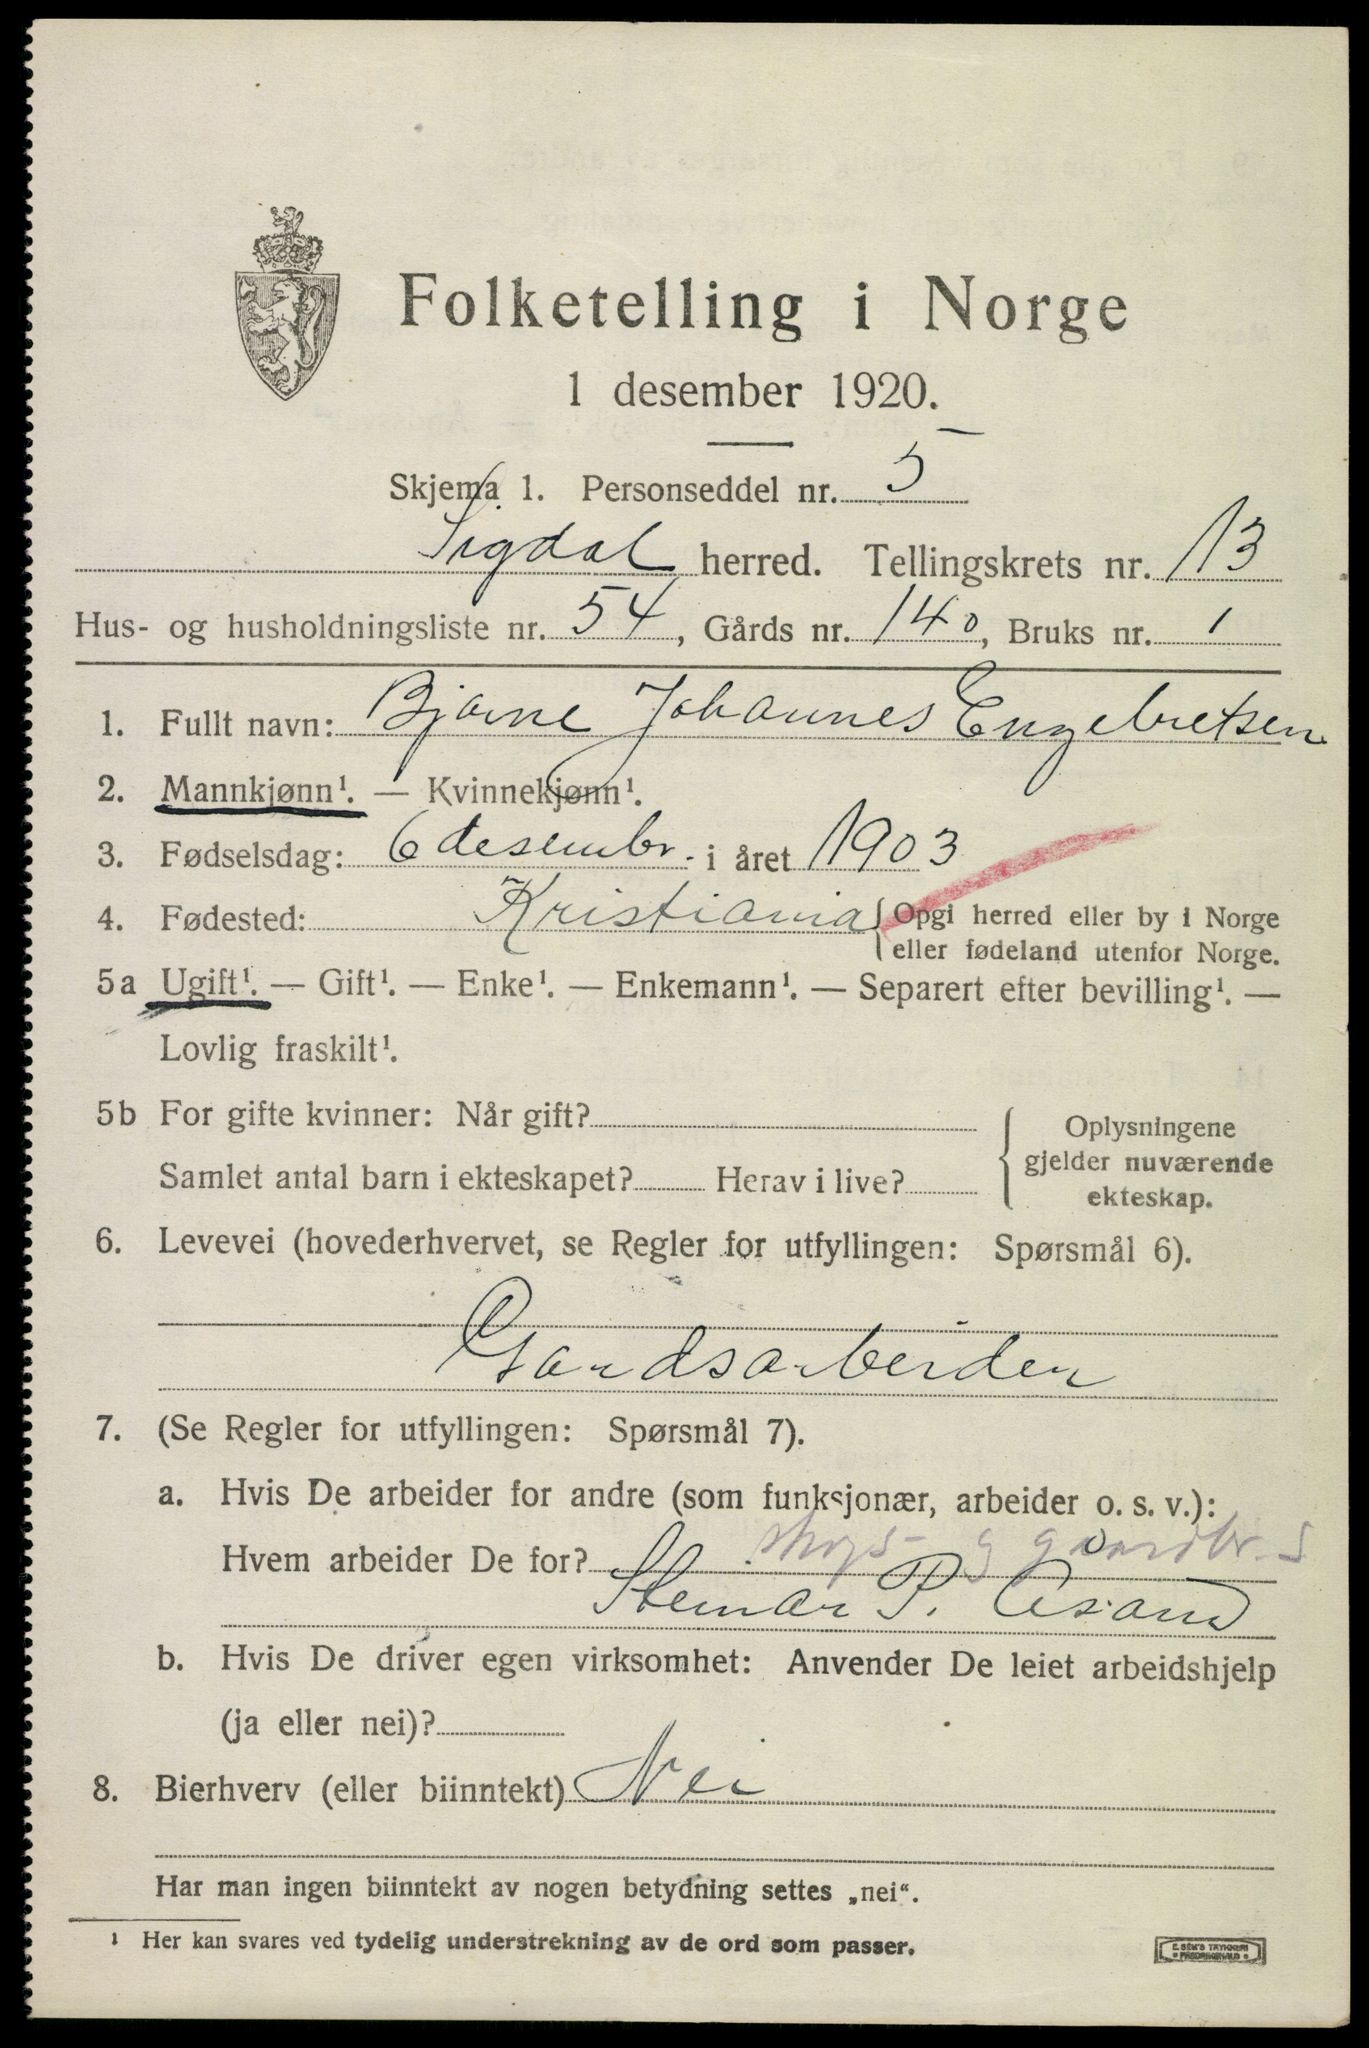 Folketelling i Norge
1 desember 1920.
Skjema 1. Personseddel nr. 5
Sigdal herred. Tellingskrets nr. 13
Hus- og husholdningsliste nr. 54, Gårds nr. 140, Bruks nr. 1
1. Fullt navn: Bjarne Johannes Engebretsen
2. Mannkjønn¹. — Kvinnekjønn¹.
3. Fødselsdag: 6 desembr. i året 1903
4. Fødested: Kristiania { Opgi herred eller by i Norge
eller fødeland utenfor Norge.
5a Ugift¹. — Gift¹. — Enke¹. — Enkemann¹. — Separert efter bevilling¹. —
Lovlig fraskilt¹.
5b For gifte kvinner: Når gift?
Samlet antal barn i ekteskapet? Herav i live?
Oplysningene
gjelder nuværende
ekteskap.
6. Levevei (hovederhvervet, se Regler for utfyllingen: Spørsmål 6).
Gardsarbeider
7. (Se Regler for utfyllingen: Spørsmål 7).
a. Hvis De arbeider for andre (som funksjonær, arbeider o. s. v.):
Hvem arbeider De for? skogs- g gaardbr.
Steinar P. Aasand
b. Hvis De driver egen virksomhet: Anvender De leiet arbeidshjelp
(ja eller nei)?
8. Bierhverv (eller biinntekt) Nei
Har man ingen biinntekt av nogen betydning settes „nei“.
¹ Her kan svares ved tydelig understrekning av de ord som passer.
E. SEM'S TRYKKERI
FREDRIKSHALD